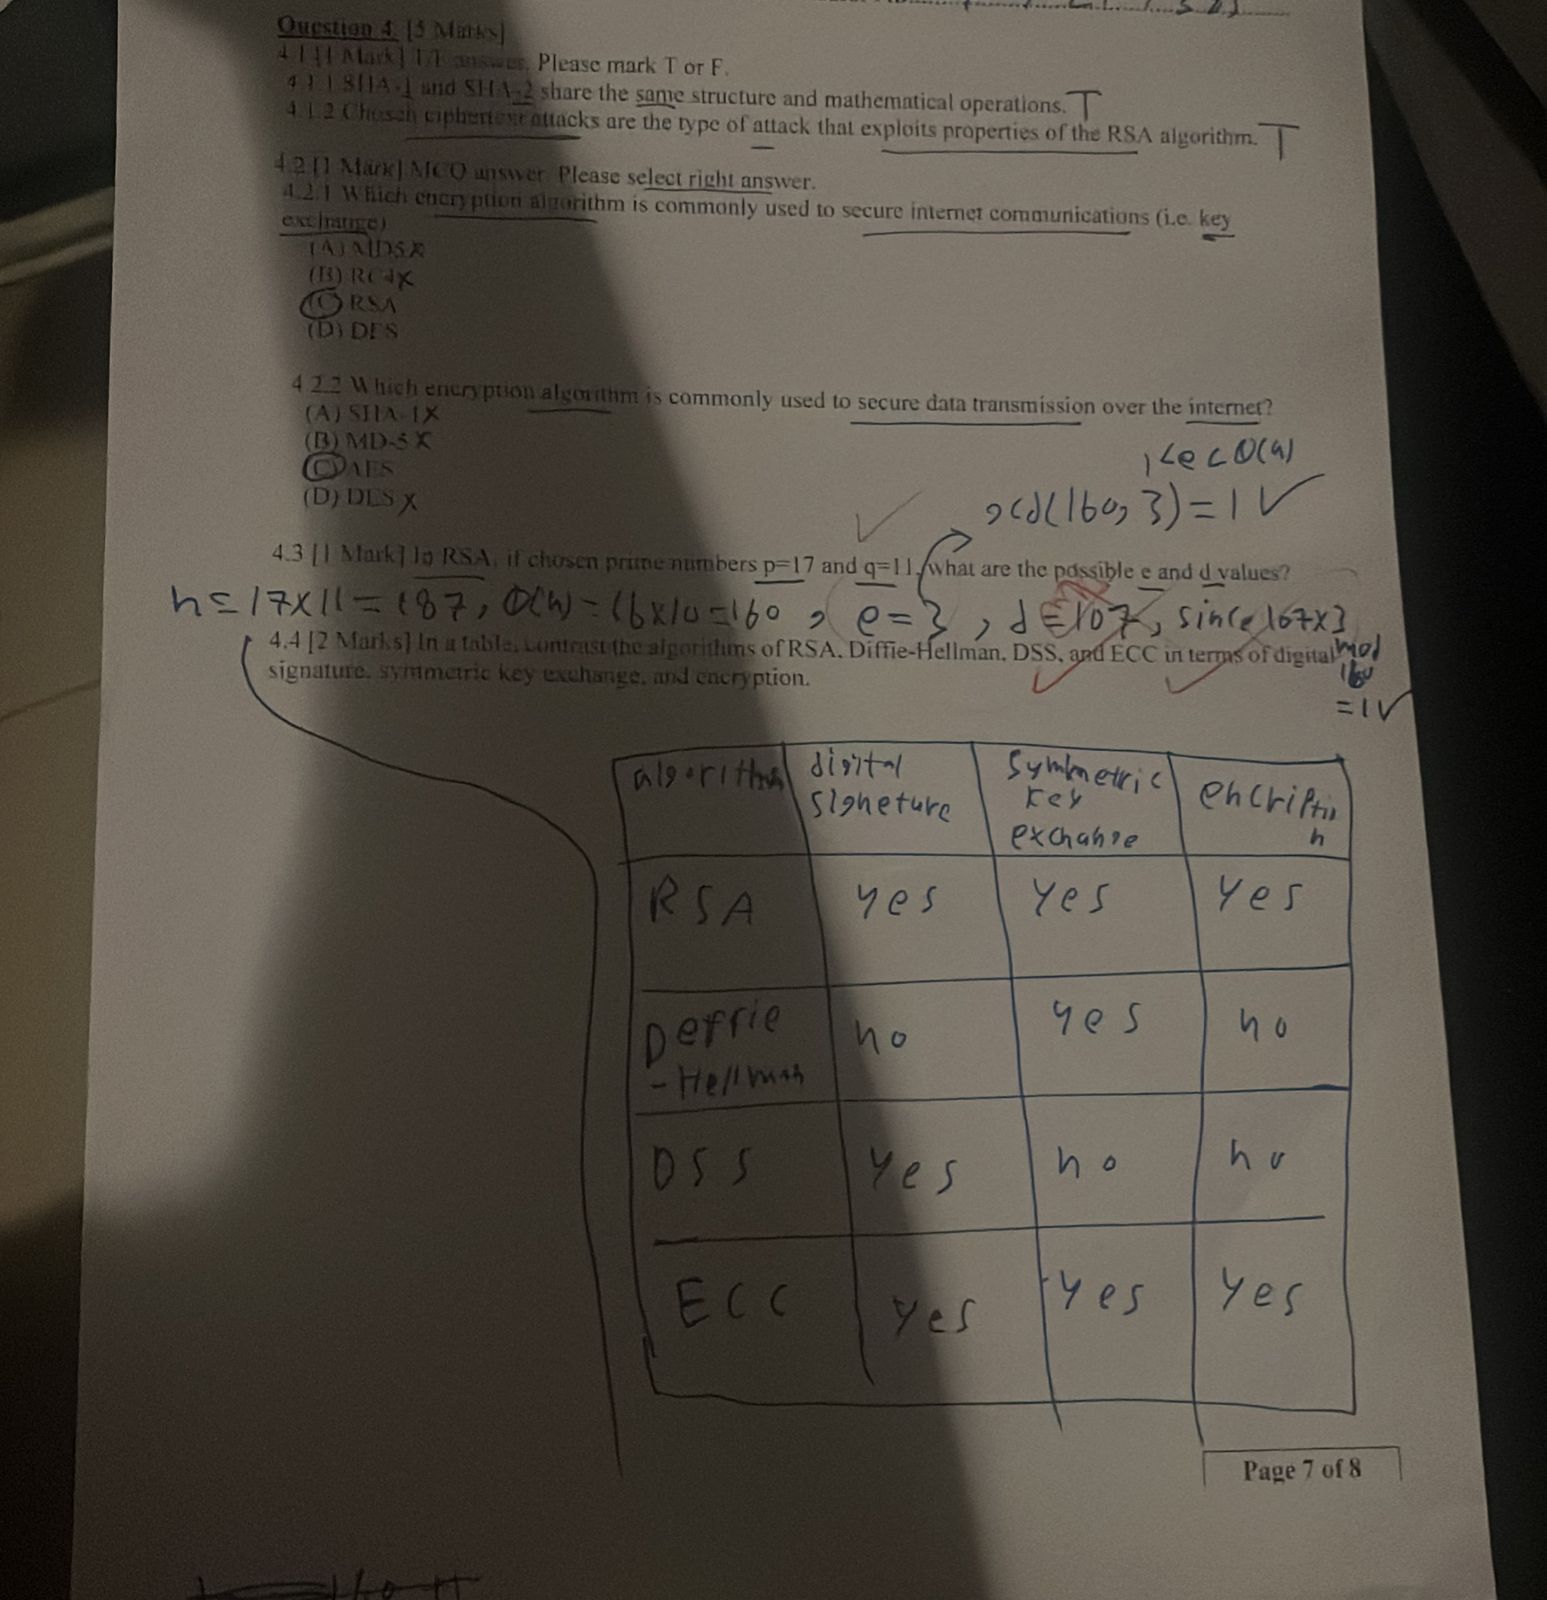 Question 4. [5 Marks]
4.1 [1 Mark] T/F answer. Please mark T or F.
4.1.1 SHA-1 and SHA-2 share the same structure and mathematical operations. T
4.1.2 Chosen ciphertext attacks are the type of attack that exploits properties of the RSA algorithm. T
4.2 [1 Mark] MCQ answer. Please select right answer.
4.2.1 Which encryption algorithm is commonly used to secure internet communications (i.e. key
exchange)
(A) MD5 x
(B) RC4 x
(C) RSA
(D) DES
4.2.2 Which encryption algorithm is commonly used to secure data transmission over the internet?
(A) SHA-1 X
(B) MD-5 X
(C) AES
(D) DES X
1<e<Ø(n)
gcd(160, 3) = 1 ✓
4.3 [1 Mark] In RSA, if chosen prime numbers p=17 and q=11, what are the possible e and d values?
n = 17x11 = 187, Ø(n) = 16x10 = 160, e = 3, d = 107, since 107x3
mod
160
= 1 ✓
4.4 [2 Marks] In a table, contrast the algorithms of RSA, Diffie-Hellman, DSS, and ECC in terms of digital
signature, symmetric key exchange, and encryption.
algorithm digital signeture symmetric key exchange encription
RSA yes yes yes
Deffie-Hellman no yes no
DSS yes no no
ECC yes yes yes
Page 7 of 8